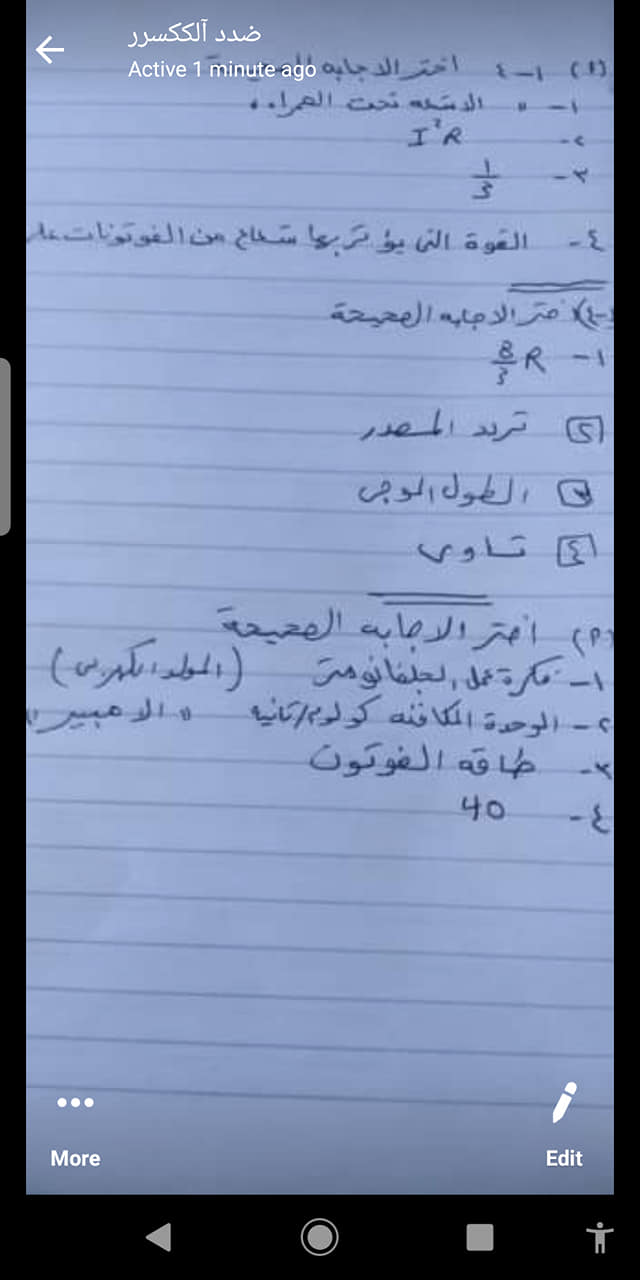 ضدد آلككسرر
Active 1 minute ago
(١) ١-٤ اختر الاجابه
١- " الاشعه تحت الحمراء "
٢- I²R
٣- 1/3
٤- القوة التى يؤثر بها شعاع من الفوتونات على
ختر الاجابه الصحيحة
١- 8/3 R
[٢] تردد المصدر
الطول الموجى
[٤] تساوى
(٣) اختر الاجابه الصحيحة
١- فكرة عمل الجلفانومتر (المولد الكهربى)
٢- الوحدة المكافئه كولوم/ثانيه " الامبير "
٣- طاقه الفوتون
٤- 40
More
Edit